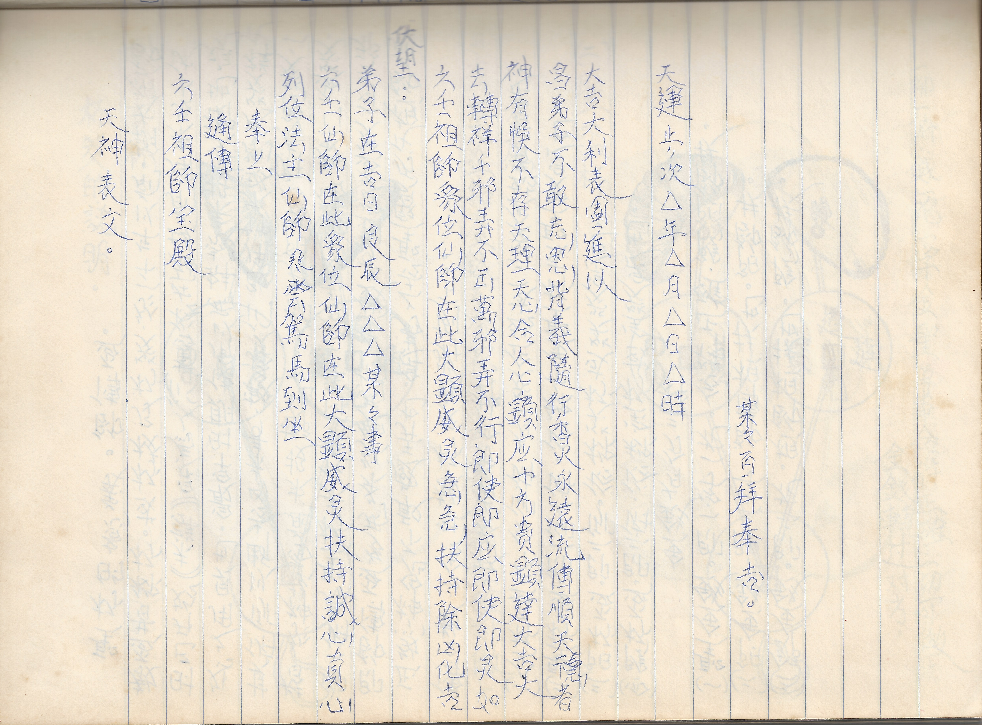 天神表文。
六壬祖師宝殿
通傳
奉上
列位法主仙師飛雲駕馬到坐
六壬仙師在此眾位仙師在此大顯威灵扶持誠心真心
弟子在吉日良辰△△△某々壽
伏望：
六壬祖師眾位仙師在此大顯威灵急急扶持除凶化吉
去轉祥千邪弄不正萬邪弄不行即使即应即使即灵如
神有悞不存天理天心合人心顯应十方貴顯達大吉大
為弟子不敢忘恩背義隨行香火永遠流傳順天聽者
大吉大利表圓進以
天運上次△年△月△日△時
某々百拜奉